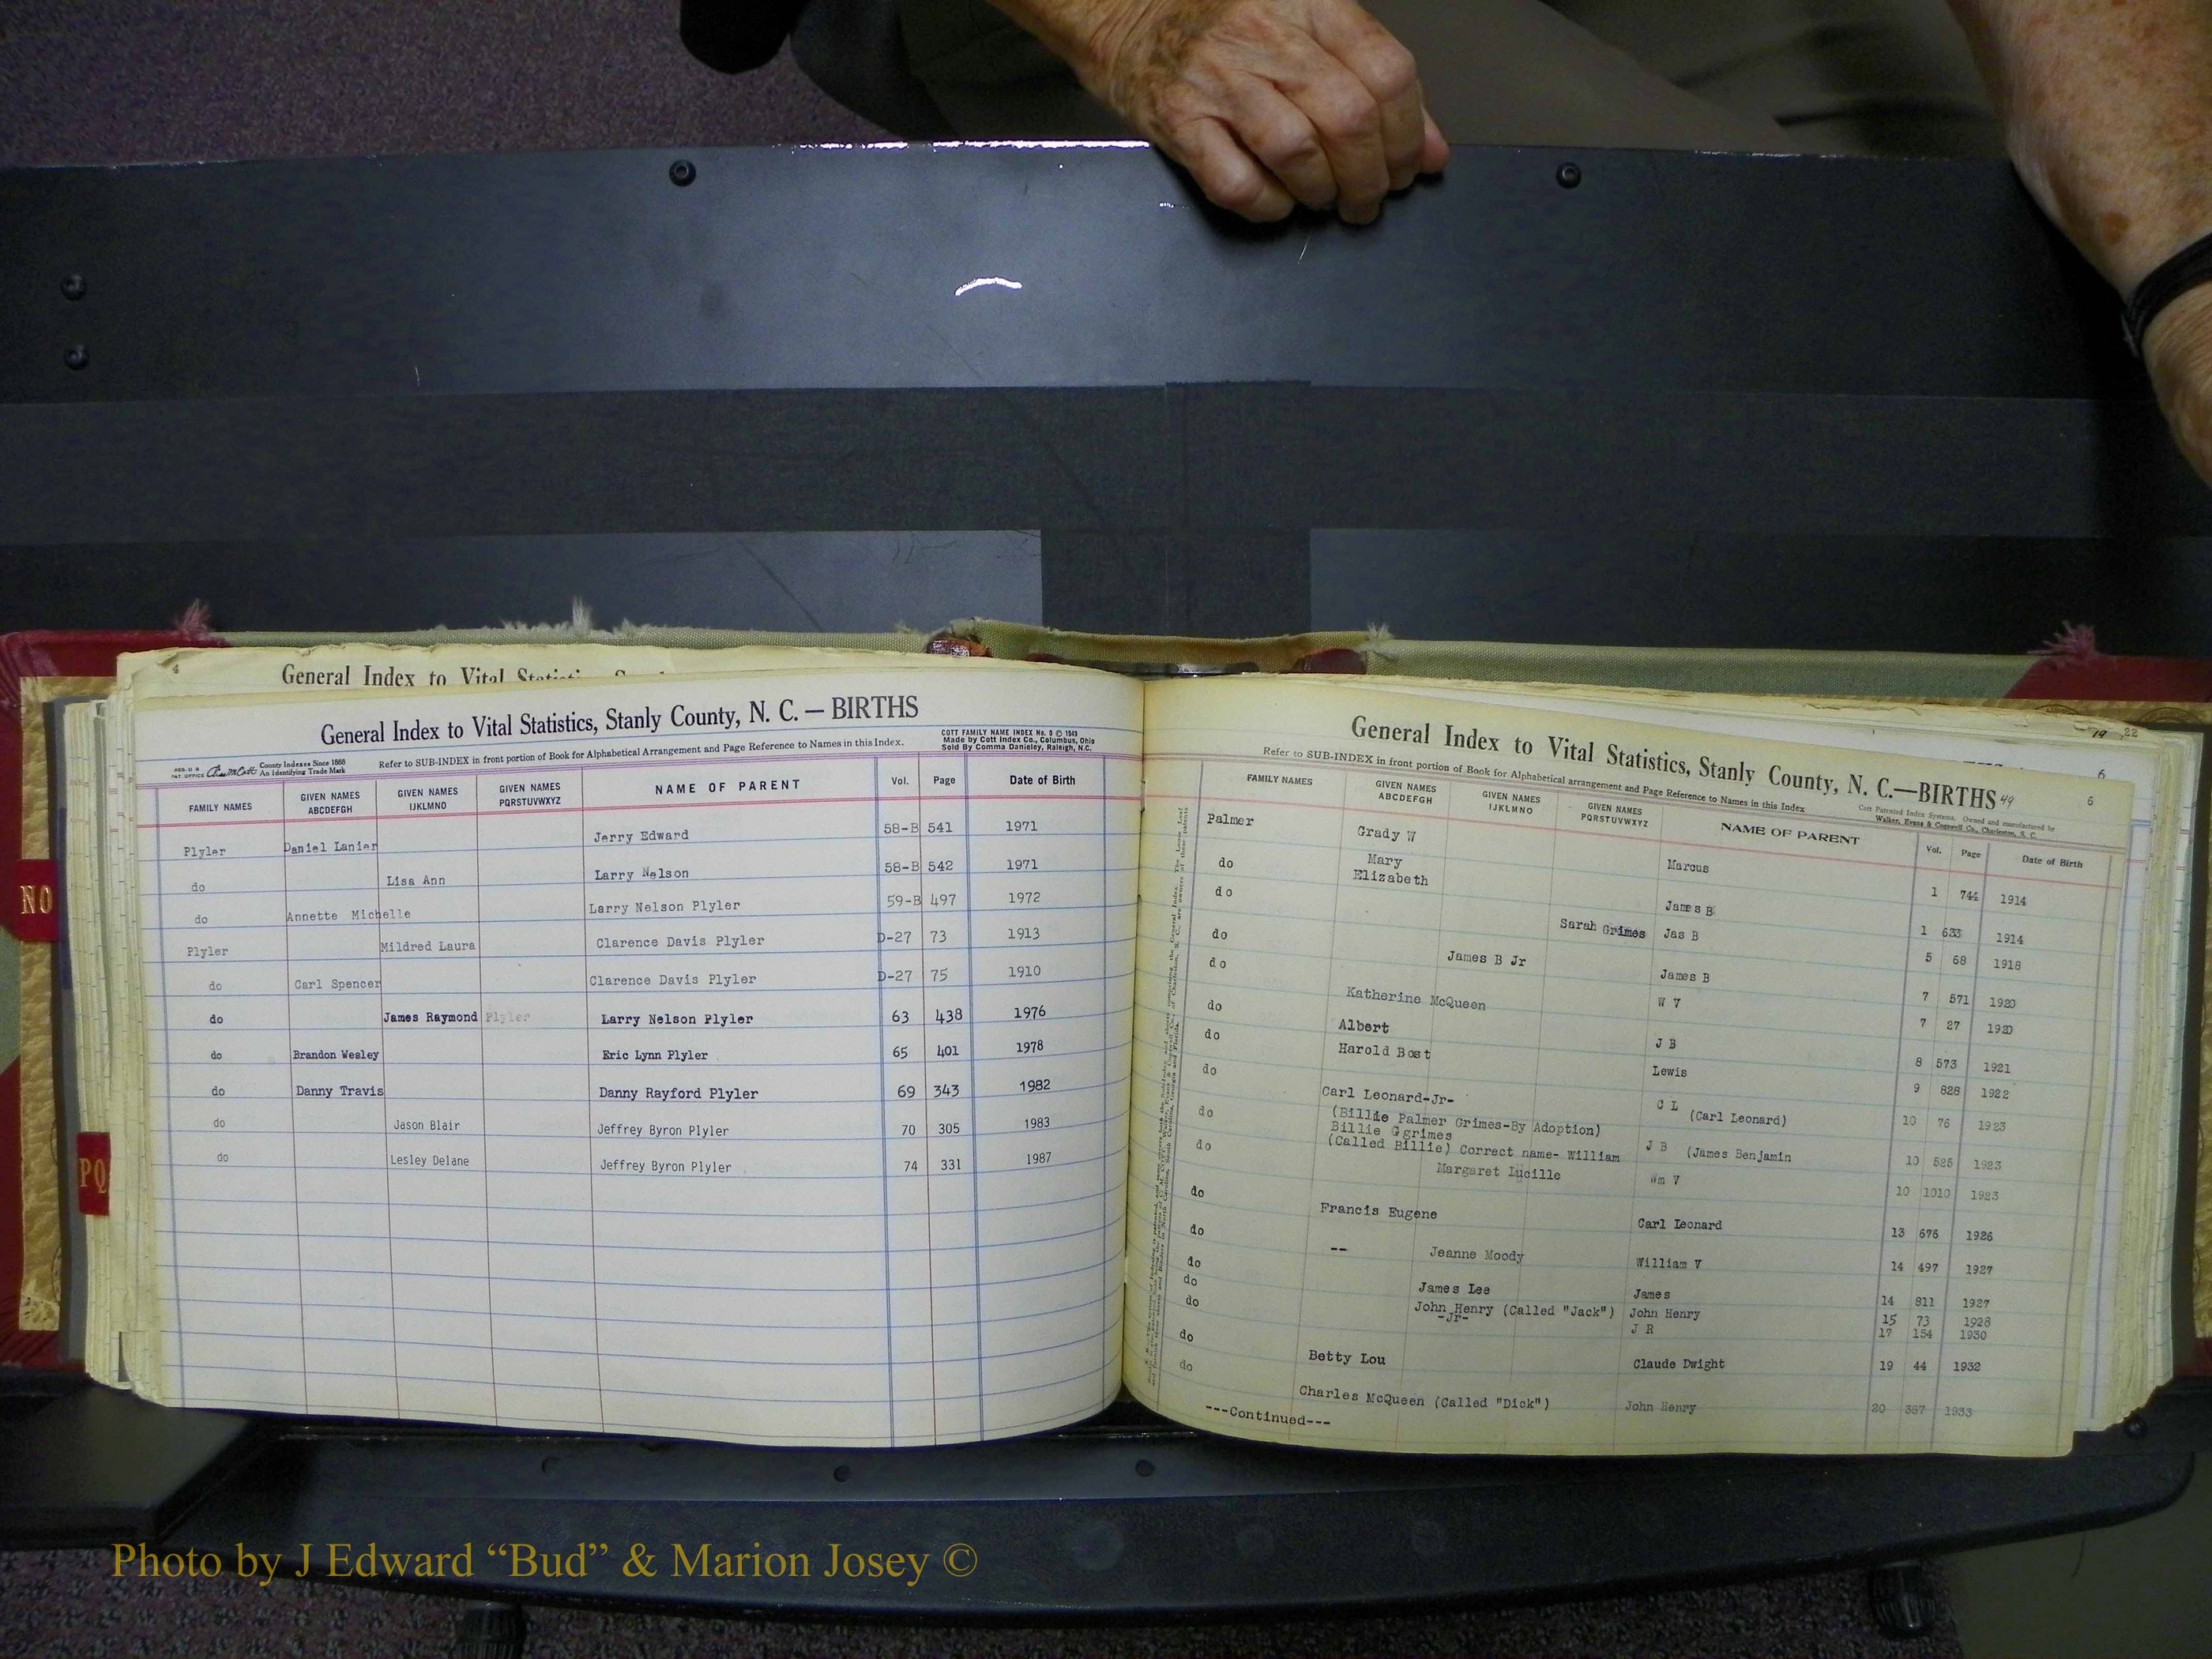 4
General Index to Vital Statistics, S
General Index to Vital Statistics, Stanly County, N. C. — BIRTHS
COTT FAMILY NAME INDEX No. 9 © 1949
Made by Cott Index Co., Columbus, Ohio
Sold By Comma Danieley, Raleigh, N.C.
REG. U S PAT. OFFICE County Indexes Since 1888 An Identifying Trade Mark
Refer to SUB-INDEX in front portion of Book for Alphabetical Arrangement and Page Reference to Names in this Index.
FAMILY NAMES GIVEN NAMES ABCDEFGH GIVEN NAMES IJKLMNO GIVEN NAMES PQRSTUVWXYZ NAME OF PARENT Vol. Page Date of Birth
Plyler Daniel Lanier Jerry Edward 58-B 541 1971
do Lisa Ann Larry Nelson 58-B 542 1971
do Annette Michelle Larry Nelson Plyler 59-B 497 1972
Plyler Mildred Laura Clarence Davis Plyler D-27 73 1913
do Carl Spencer Clarence Davis Plyler D-27 75 1910
do James Raymond Plyler Larry Nelson Plyler 63 438 1976
do Brandon Wesley Eric Lynn Plyler 65 401 1978
do Danny Travis Danny Rayford Plyler 69 343 1982
do Jason Blair Jeffrey Byron Plyler 70 305 1983
do Lesley Delane Jeffrey Byron Plyler 74 331 1987
NO
PQ
19 22
6
General Index to Vital Statistics, Stanly County, N. C.—BIRTHS 49 6
Refer to SUB-INDEX in front portion of Book for Alphabetical arrangement and Page Reference to Names in this Index
Cott Patented Index Systems. Owned and manufactured by
Walker, Evans & Cogswell Co., Charleston, S. C.
FAMILY NAMES GIVEN NAMES ABCDEFGH GIVEN NAMES IJKLMNO GIVEN NAMES PQRSTUVWXYZ NAME OF PARENT Vol. Page Date of Birth
Palmer Grady W Marcus 1 744 1914
do Mary Elizabeth James B 1 633 1914
do Sarah Grimes Jas B 5 68 1918
do James B Jr James B 7 571 1920
do Katherine McQueen W V 7 27 1920
do Albert J B 8 573 1921
do Harold Bost Lewis 9 828 1922
do Carl Leonard-Jr- C L (Carl Leonard) 10 76 1923
do (Billie Palmer Grimes-By Adoption)
Billie G grimes
(Called Billie) Correct name- William J B (James Benjamin 10 525 1923
do Margaret Lucille Wm V 10 1010 1923
do Francis Eugene Carl Leonard 13 676 1926
do -- Jeanne Moody William V 14 497 1927
do James Lee James 14 811 1927
do John Henry (Called "Jack") John Henry 15 73 1928
do -Jr- J R 17 154 1930
do Betty Lou Claude Dwight 19 44 1932
do Charles McQueen (Called "Dick") John Henry 20 387 1933
---Continued---
Photo by J Edward “Bud” & Marion Josey ©